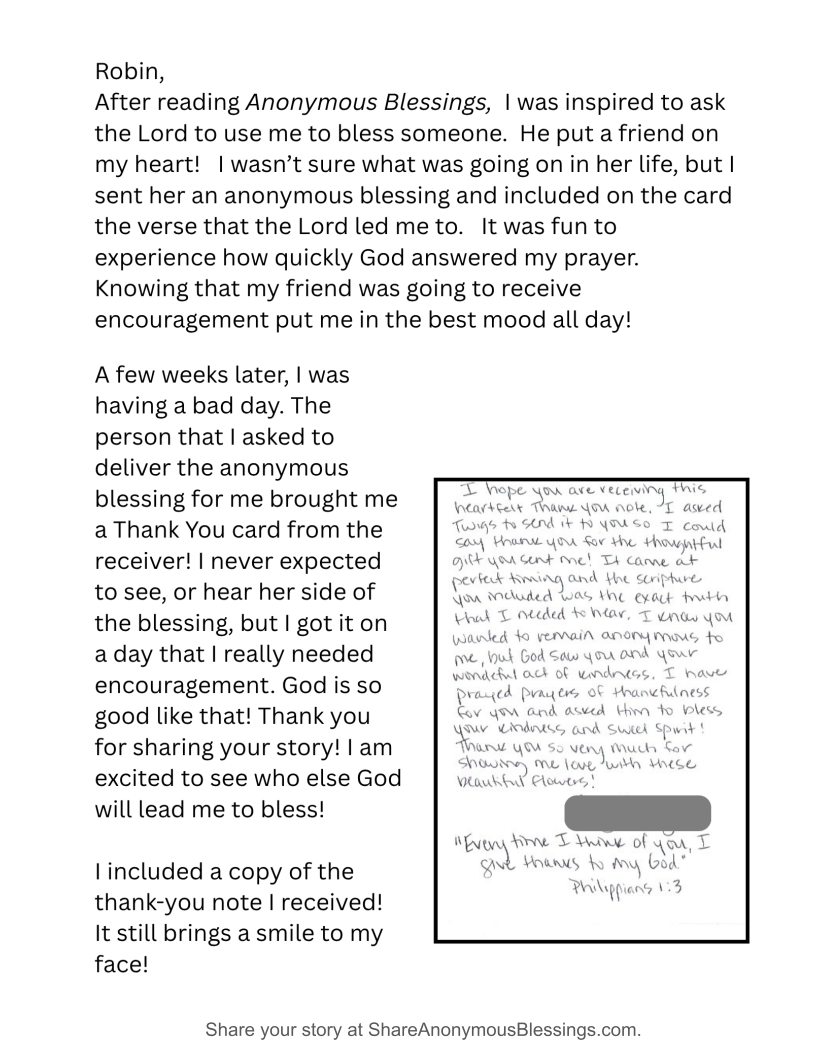 Robin,
After reading Anonymous Blessings,  I was inspired to ask
the Lord to use me to bless someone.  He put a friend on
my heart!   I wasn’t sure what was going on in her life, but I
sent her an anonymous blessing and included on the card
the verse that the Lord led me to.   It was fun to
experience how quickly God answered my prayer.
Knowing that my friend was going to receive
encouragement put me in the best mood all day!
A few weeks later, I was
having a bad day. The
person that I asked to
deliver the anonymous
blessing for me brought me
a Thank You card from the
receiver! I never expected
to see, or hear her side of
the blessing, but I got it on
a day that I really needed
encouragement. God is so
good like that! Thank you
for sharing your story! I am
excited to see who else God
will lead me to bless!
I included a copy of the
thank-you note I received!
It still brings a smile to my
face!
I hope you are receiving this
heartfelt Thank you note. I asked
Twigs to send it to you so I could
say thank you for the thoughtful
gift you sent me! It came at
perfect timing and the scripture
you included was the exact truth
that I needed to hear. I know you
wanted to remain anonymous to
me, but God saw you and your
wondeful act of kindness. I have
prayed prayers of thankfulness
for you and asked Him to bless
your kindness and sweet spirit!
Thank you so very much for
showing me love with these
beautiful flowers!
"Every time I think of you, I
give thanks to my God."
Philippians 1:3
Share your story at ShareAnonymousBlessings.com.